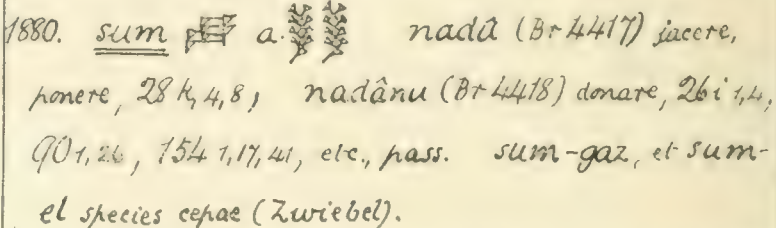 1880. sum a. nadû (Br 4417) jacere,
ponere, 28 k, 4, 8, nadânu (Br 4418) donare, 26 i 1,4,
90 1, 26, 154 1, 17, 41, etc., pass. sum-gaz, et sum-
el species cepae (Zwiebel).